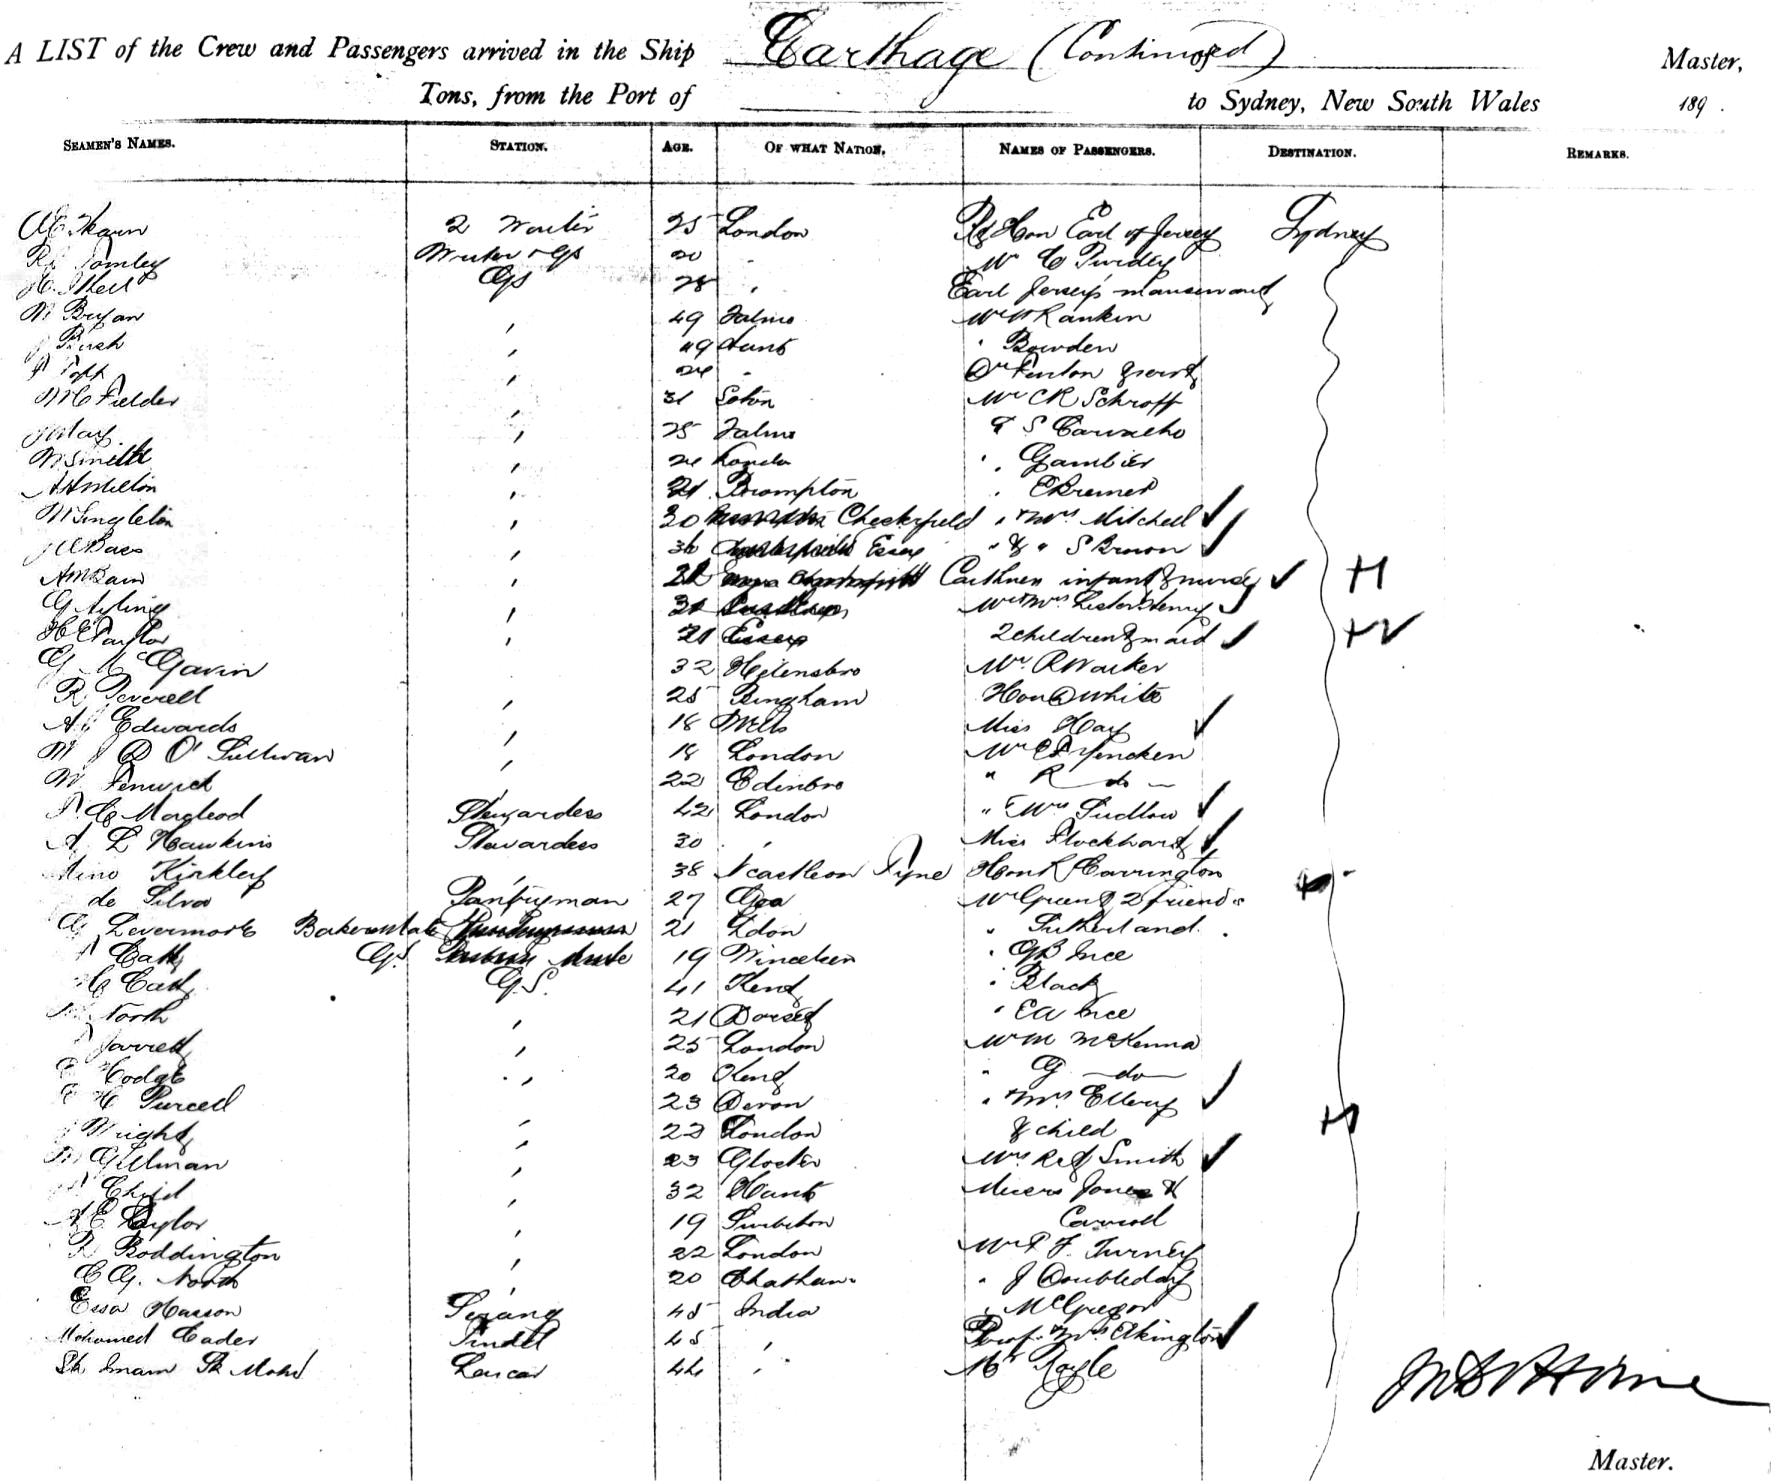 A LIST of the Crew and Passengers arrived in the Ship Carthage (Continued) of Master,
Tons, from the Port of to Sydney, New South Wales 189 .
SEAMEN'S NAMES. STATION. AGE. OF WHAT NATION. NAMES OF PASSENGERS. DESTINATION. REMARKS.
2 Writer 25 London Rt Hon Earl of Jersey Sydney
Writer & GS 20 " Mr C Purdey
GS 28 " Earl Jersey's manservant
M Bryan " 49 Mr W Rankin
J Bush " 49 Hants " Bowden
" 24 " Dr Fenton
M C Fielder " 31 Soton Mr CR Schroff
J May " 25 & S
W Smith " 24 London " Gambier
A Hamilton " 21 Brompton " E Kremer
W Singleton " 30 Chesterfield " & Mrs Mitchell ✓
J C Bass " 36 Essex " & " S Brown ✓
A McBain " 21 Caithness infant & nurse ✓ H
G Ayling " Mr & Mrs Lester Henry ✓
H E Taylor " 21 Essex 2 children & maid ✓ H ✓
G McGavin 32 Helensbro Mr R Walker
R Peverell " 25 Bingham Hon D White
A J Edwards " 18 Wells Miss Hay ✓
M J D O'Sullivan " 18 London Mr E F Yencken
M Fenwick " 22 Edinbro " R do
C Macleod Stewardess 42 London " & Mrs Ludlow ✓
A L Hawkins Stewardess 30 " Miss Stockhardt ✓
Kirkley " 38 Ncastle on Tyne Hon R Carrington
de Silva Pantryman 27 Goa Mr Grant & 2 friends
G Levermore Bakers mate 21 Ldon " Sutherland
Catt GS 19 " GB Ince
H Catt G.S. 41 Kent " Black
North " 21 Dorset " EA Ince
Jarrett " 25 London Mr M McKenna
Hodge " 20 Kent " G do
H Purcell 23 Devon " & Mrs Ellery ✓
J Wright " 22 London & child H
Gillman " 23 Gloster Mrs Smith ✓
Child " 32 Hants Messrs Jones &
Taylor " 19 Surbiton Carroll
R Boddington " 22 London Mr F. Turney
C G. North " 20 Chatham " J Doubleday
Essa Hasson Serang 45 India " McGregor
Mohomed Cader Tindel 45 " Prof & Mrs Elkington ✓
Sk Imam Sk Mohd Lascar 44 " Mr Royle
Master.